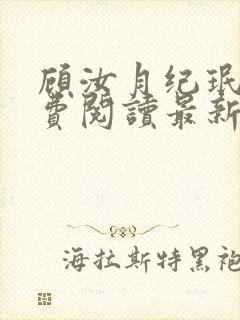 顾汝月纪珉
費閱讀最新
海拉斯特黑袍